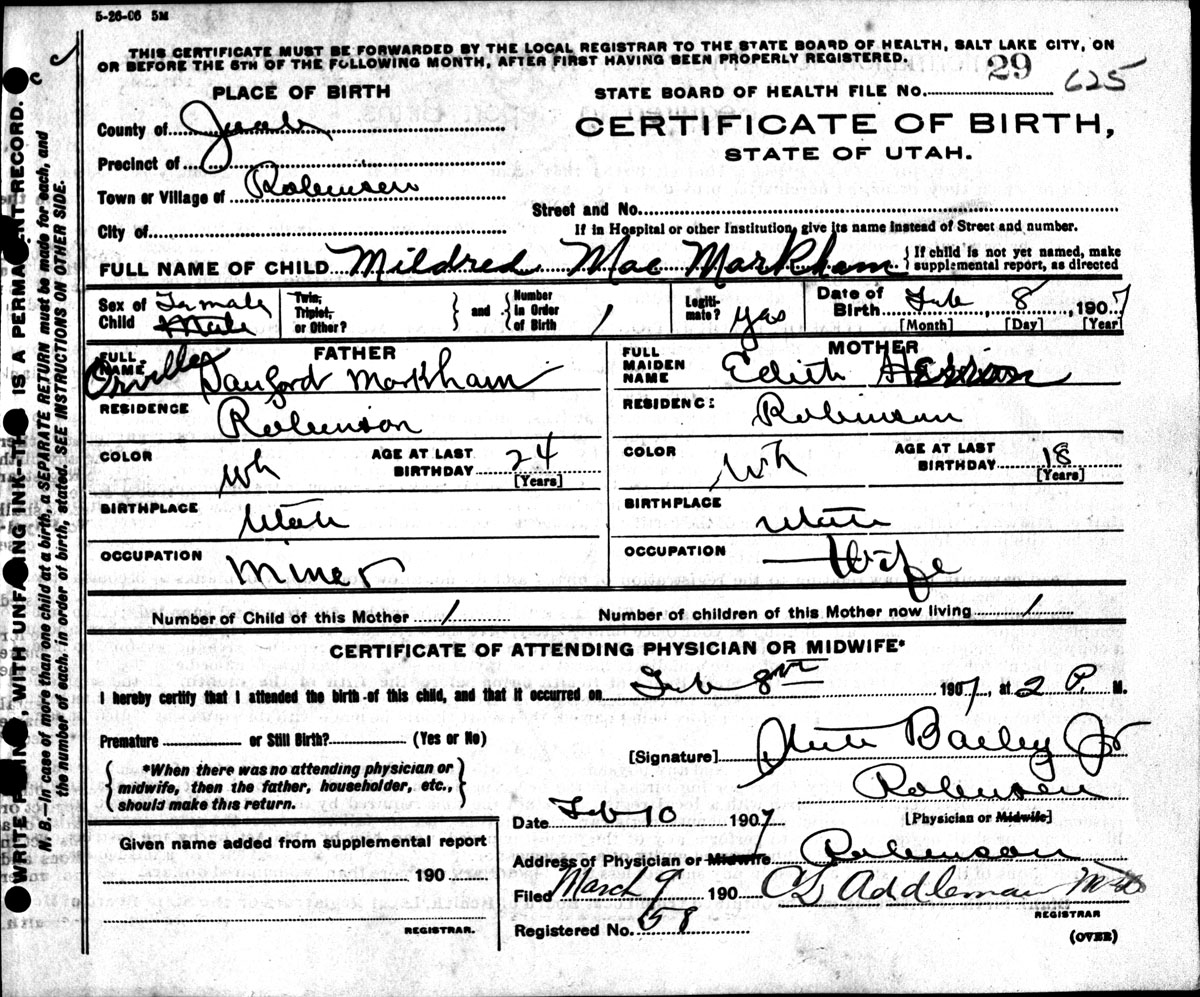 5-26-06 5M
THIS CERTIFICATE MUST BE FORWARDED BY THE LOCAL REGISTRAR TO THE STATE BOARD OF HEALTH, SALT LAKE CITY, ON
OR BEFORE THE 5TH OF THE FOLLOWING MONTH, AFTER FIRST HAVING BEEN PROPERLY REGISTERED.
29 625
PLACE OF BIRTH
STATE BOARD OF HEALTH FILE NO.
County of Juab
CERTIFICATE OF BIRTH,
STATE OF UTAH.
Precinct of
Town or Village of Robinson
Street and No.
City of
If in Hospital or other Institution, give its name instead of Street and number.
FULL NAME OF CHILD Mildred Mae Markham { If child is not yet named, make
supplemental report, as directed
Sex of Child Female Male
Twin, Triplet, or Other? } and { Number in Order of Birth 1
Legitimate? yes
Date of Birth Feb 8, 1907
[Month] [Day] [Year]
FATHER
FULL NAME Orville Sanford Markham
RESIDENCE Robinson
COLOR wh
AGE AT LAST BIRTHDAY 24
[Years]
BIRTHPLACE Utah
OCCUPATION Miner
MOTHER
FULL MAIDEN NAME Edith
RESIDENCE: Robinson
COLOR wh
AGE AT LAST BIRTHDAY 18
[Years]
BIRTHPLACE Utah
OCCUPATION Wife
Number of Child of this Mother 1
Number of children of this Mother now living 1
CERTIFICATE OF ATTENDING PHYSICIAN OR MIDWIFE*
I hereby certify that I attended the birth of this child, and that it occurred on Feb 8th 1907, at 2 P. M.
Premature or Still Birth? (Yes or No)
[Signature] Bailey Jr
{ *When there was no attending physician or
midwife, then the father, householder, etc.,
should make this return. }
Robinson
Date Feb 10 1907
[Physician or Midwife]
Given name added from supplemental report
190
REGISTRAR.
Address of Physician or Midwife Robinson
Filed March 9 190 Addleman MD
REGISTRAR
Registered No. 58
(OVER)
WRITE PLAINLY, WITH UNFADING INK—THIS IS A PERMANENT RECORD.
N. B.—In case of more than one child at a birth, a SEPARATE RETURN must be made for each, and
the number of each, in order of birth, stated. SEE INSTRUCTIONS ON OTHER SIDE.